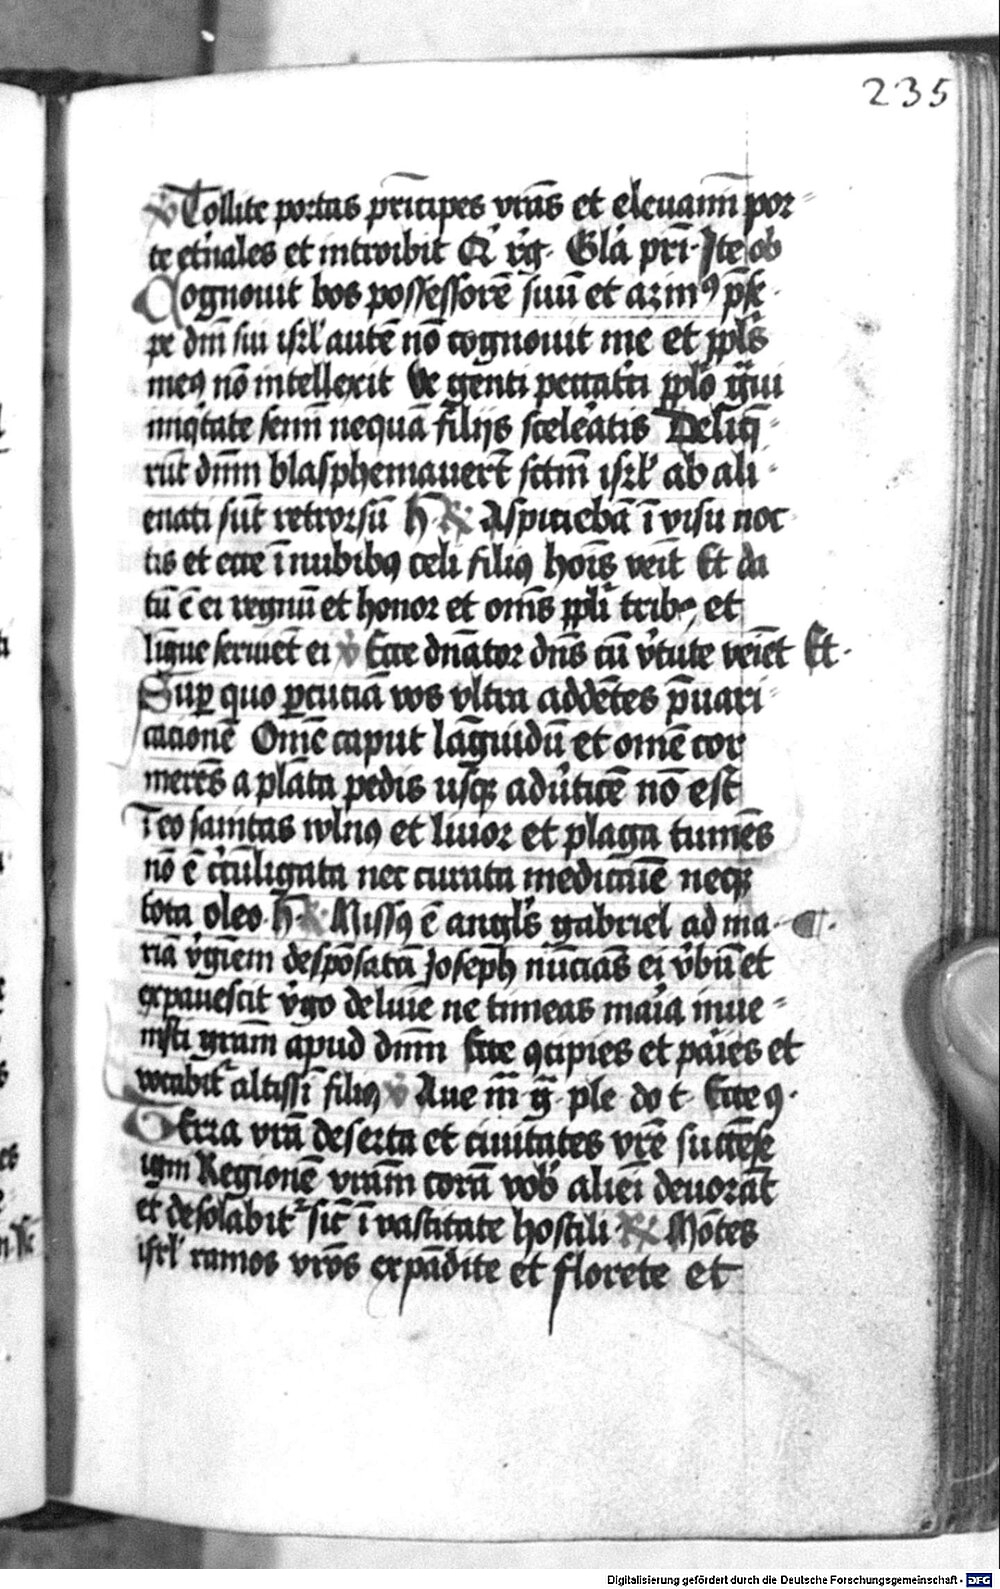 235
℣ Tollite portas pri̅cipes vr̅as et eleuami̅ por
te et'nales et introibit Q' rg̅. Gl'a pr̅i. Ite ob
Cognouit bos possessore̅ suu̅ et azinꝰ p̅se
pe dn̅i sui isrl' aute̅ no̅ cognouit me et ppl's
meꝰ no̅ intellexit Ve genti peccat'ci pp̅lo g̅ui
iniq'tate semi̅ nequa̅ filijs scele'atis Deliq̅
ru̅t dn̅m blasphemauer̅t sc̅tm isrl' ab ali
enati su̅t retrorsu̅ h̅ ℟ Aspicieba̅ i̅ visu noc
tis et ecce i̅ nubibꝰ celi filiꝰ hoi̅s ve̅it Et da
tu̅ e̅ ei regnu̅ et honor et om̅s ppl'i tribꝰ et
ligue seruie̅t ei ℣ Ecce dn̅ator dn̅s cu̅ v'tute ve̅iet Et.
Sup quo p̱cucia̅ vos vltra adde̅tes p̅uari
cacione̅ Om̅e caput la̅guidu̅ et ome̅ cor
mere̅s a pla̅ta pedis usꝗ adu'tice̅ no̅ est
i eo sanitas wlnꝰ et liuor et plaga tume̅s
no̅ e̅ c'cu̅ligata nec curata medica̅ie̅ necꝗ
fota oleo. h̅ ℟ Missꝰ e̅ angl's gabriel ad ma
ria̅ v'gi̅em despo̅sata̅ Joseph nu̅cia̅s ei v'bu̅ et
expauescit v'go de lui̅e ne timeas ma'ia inue
nisti gra̅m apud dn̅m Ecce ꝯcipies et pa'ies et
vocabit̅ altissi̅ filiꝰ ℣ Aue m̅ g̅ ple do t Ecce ꝯ.
Terra vr̅a deserta et ciuitates vr̅e succe̅se
igni Regione̅ vr̅am cora̅ vob' alie̅i deuora̅t
et desolabit̅ sic̅ i̅ vastitate hostili ℟ Mo̅tes
isrl' ramos vr̅os expa̅dite et florete et
Digitalisierung gefördert durch die Deutsche Forschungsgemeinschaft - DFG